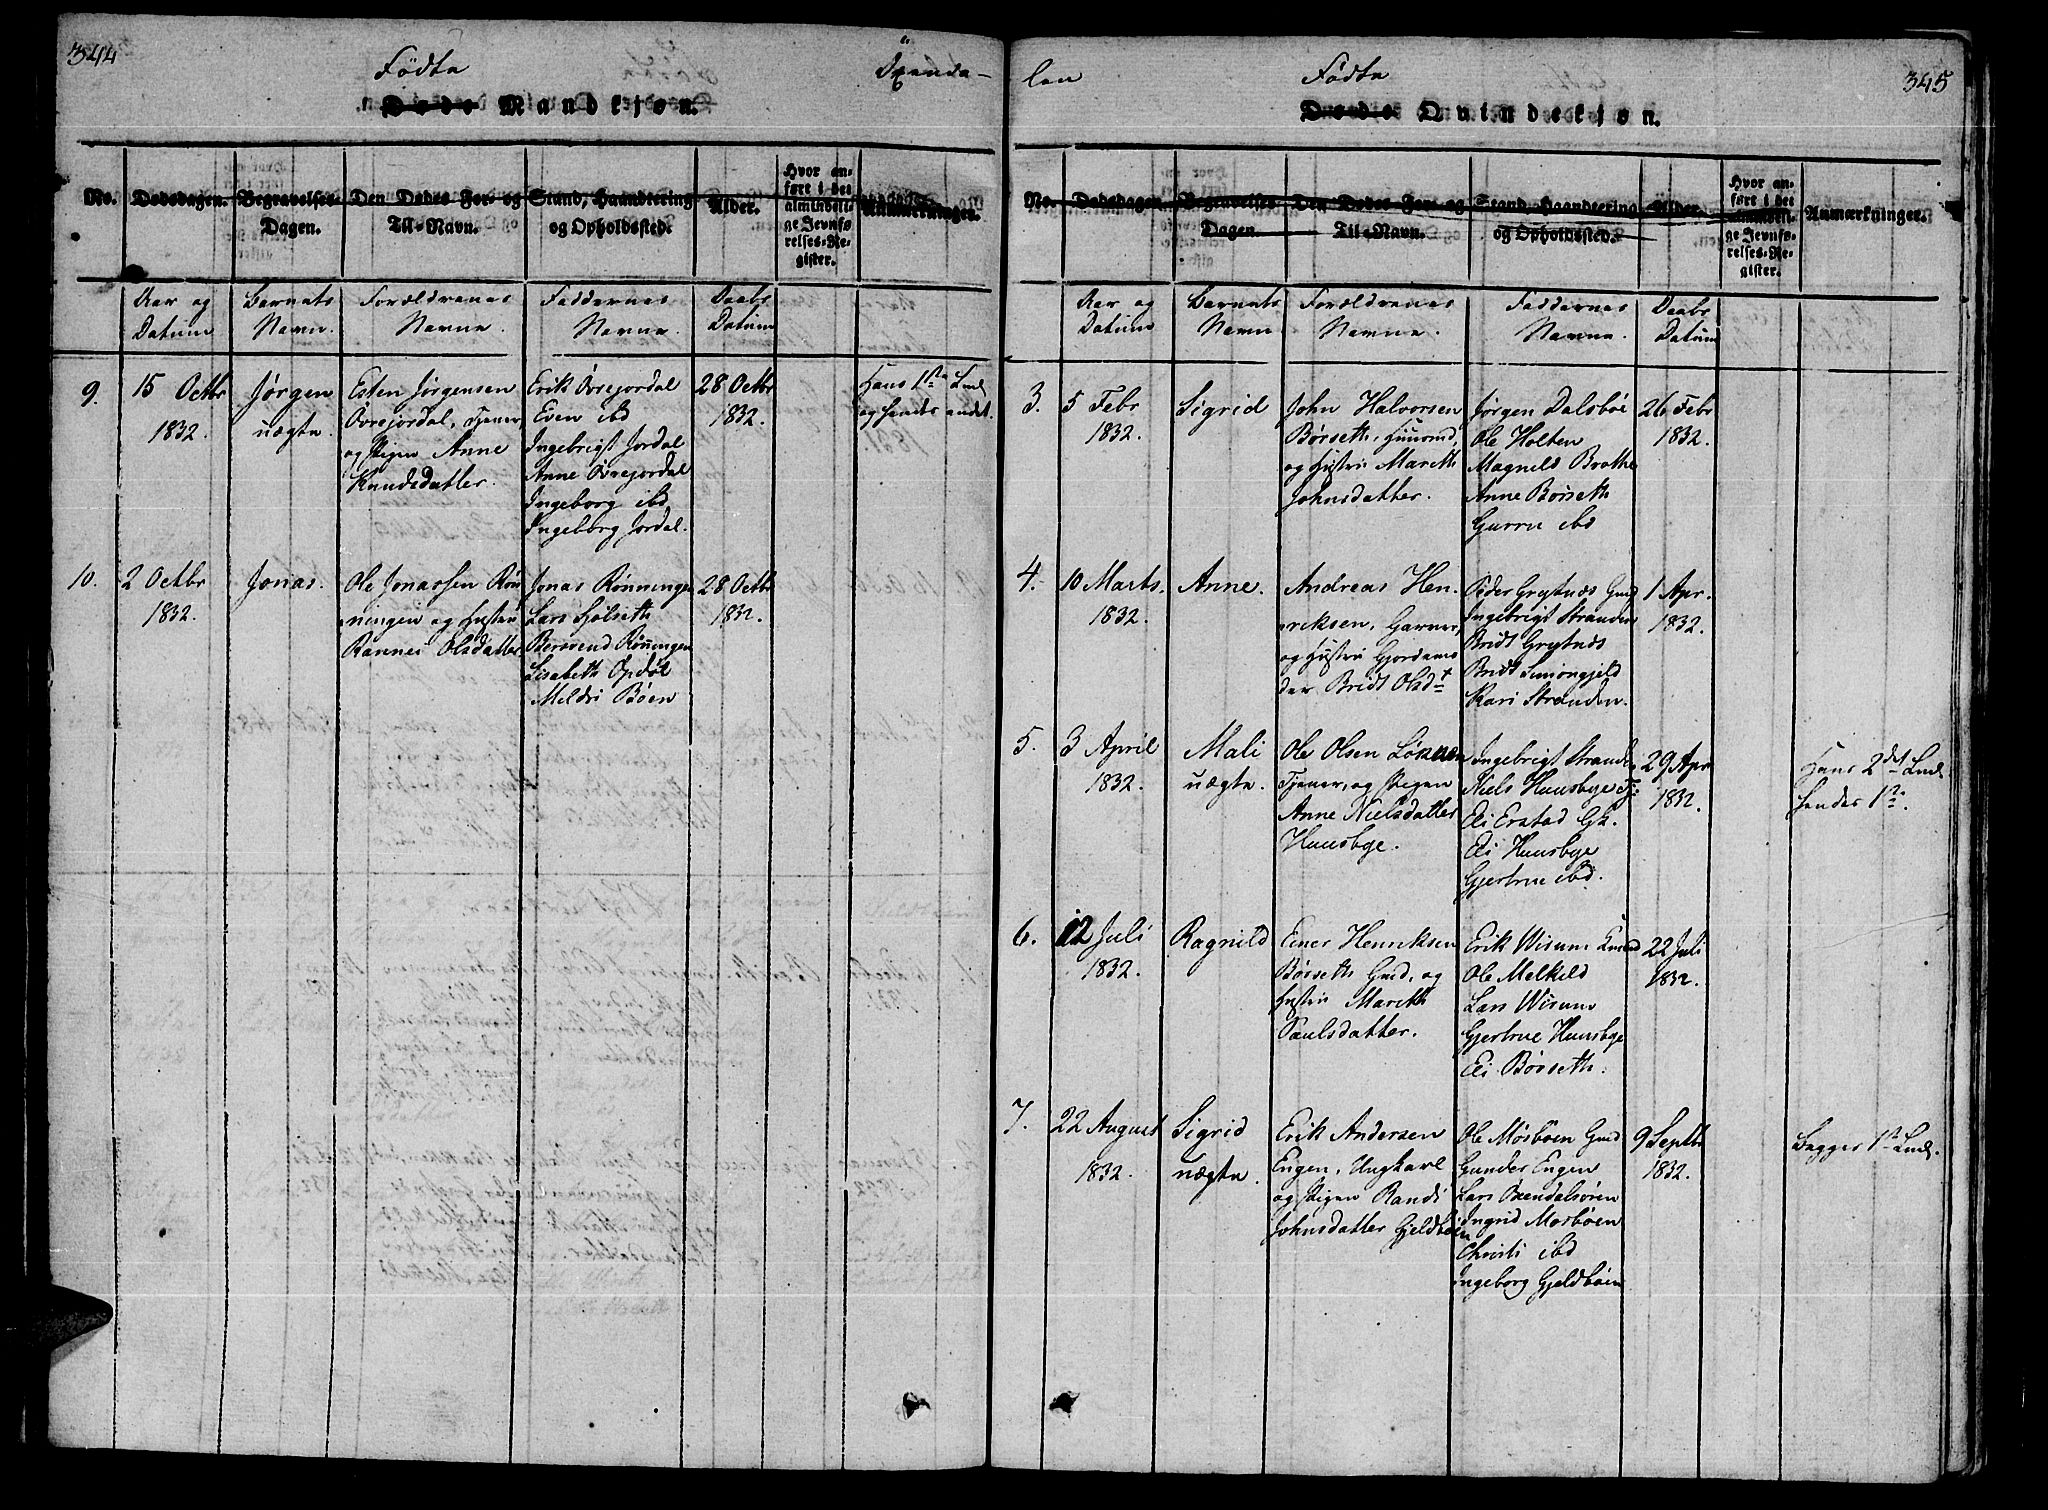 344
Födte
Øxenda-
Døde Mandkjøn.
No.
Dødsdagen.
Begravelses-
Dagen.
Den Dødes For- og
Til-Navn.
Stand, Haandtering
og Opholdssted.
Alder.
Hvor an-
ført i det
almindeli-
ge Jevnfø-
relses-Re-
gister.
Anmærkninger.
Aar og
Datum
Barnets
Navn.
Forældrenes
Navne.
Faddernes
Navne.
Daabs
Datum
9.
15 Octbr
1832.
Jørgen
uægte.
Esten Jørgensen
Øvrejordal, Tjener,
og Pigen Anne
Knudsdatter.
Erik Øvrejordal
Even ibd
Ingebrigt Jordal
Anne Øvrejordal
Ingeborg ibd
Ingeborg Jordal.
28 Octbr
1832.
Hans 1ste Leuf
og hendes andet.
10.
2 Octbr
1832.
Jonas.
Ole Jonassen Røn
ningen og Hustru
Rannei Olsdatter
Jonas Rønningen
Lars Hølseth
Berovend Rønningen
Lisabeth Opdøl
Meldri Bøen
28 Octbr
1832.
345
len
Födte
Døde Qvindekjøn.
No.
Dødsdagen.
Begravelses-
Dagen.
Den Dødes For- og
Til-Navn.
Stand, Haandtering
og Opholdssted.
Alder.
Hvor an-
ført i det
almindeli-
ge Jevnfø-
relses-Re-
gister.
Anmærkninger.
Aar og
Datum
Barnets
Navn
Forældrenes
Navne.
Faddernes
Navne.
Daabs
Datum
3.
5 Febr
1832.
Sigrid
John Halvorsen
Børseth, Huusmd,
og Hustru Marith
Johnsdatter.
Jørgen Dalsbøe
Ole Holten
Magnild Brathe
Anne Børseth
Gurru ibd
26 Febr
1832.
4.
10 Marts.
1832.
Anne.
Andreas Hen-
riksen, Garver,
og Hustru Gjordemo
der Bridt Olsdt
Peder Grytnes Gmd
Ingebrigt Stranden
Bridt Grytnes
Bridt Simongjeld
Kari Stranden.
1 Apr.
1832.
5.
3 April
1832.
Mali
uægte.
Ole Olsen
Tjener, og Pigen
Anne Nielsdatter
Huusbye.
Ingebrigt Strande
Niels Huusbye Tj:
Eli Erstad Gk.
Eli Huusbye
Gjertrue ibd.
29 Apr
1832.
Hans 2det Leuf
hendes 1te.
6.
12 Juli
1832.
Ragnild
Einer Henriksen
Børseth Gmd, og
Hustru Marith
Paulsdatter.
Erik Wisum
Ole Melkild
Lars Wisum
Gjertrue Huusbye
Eli Børseth.
22 Juli
1832.
7.
22 August
1832.
Sigrid
uægte.
Erik Andersen
Engen, Ungkarl
og Pigen Randi
Johnsdatter Gjeldbøen
Ole Mosbøen Gmd
Gunder Engen
Lars Øxendalsøren
Ingrid Mosbøen
Christi ibd
Ingeborg Gjeldbøen
9 Septbr
1832.
Begges 1ste Leuf.